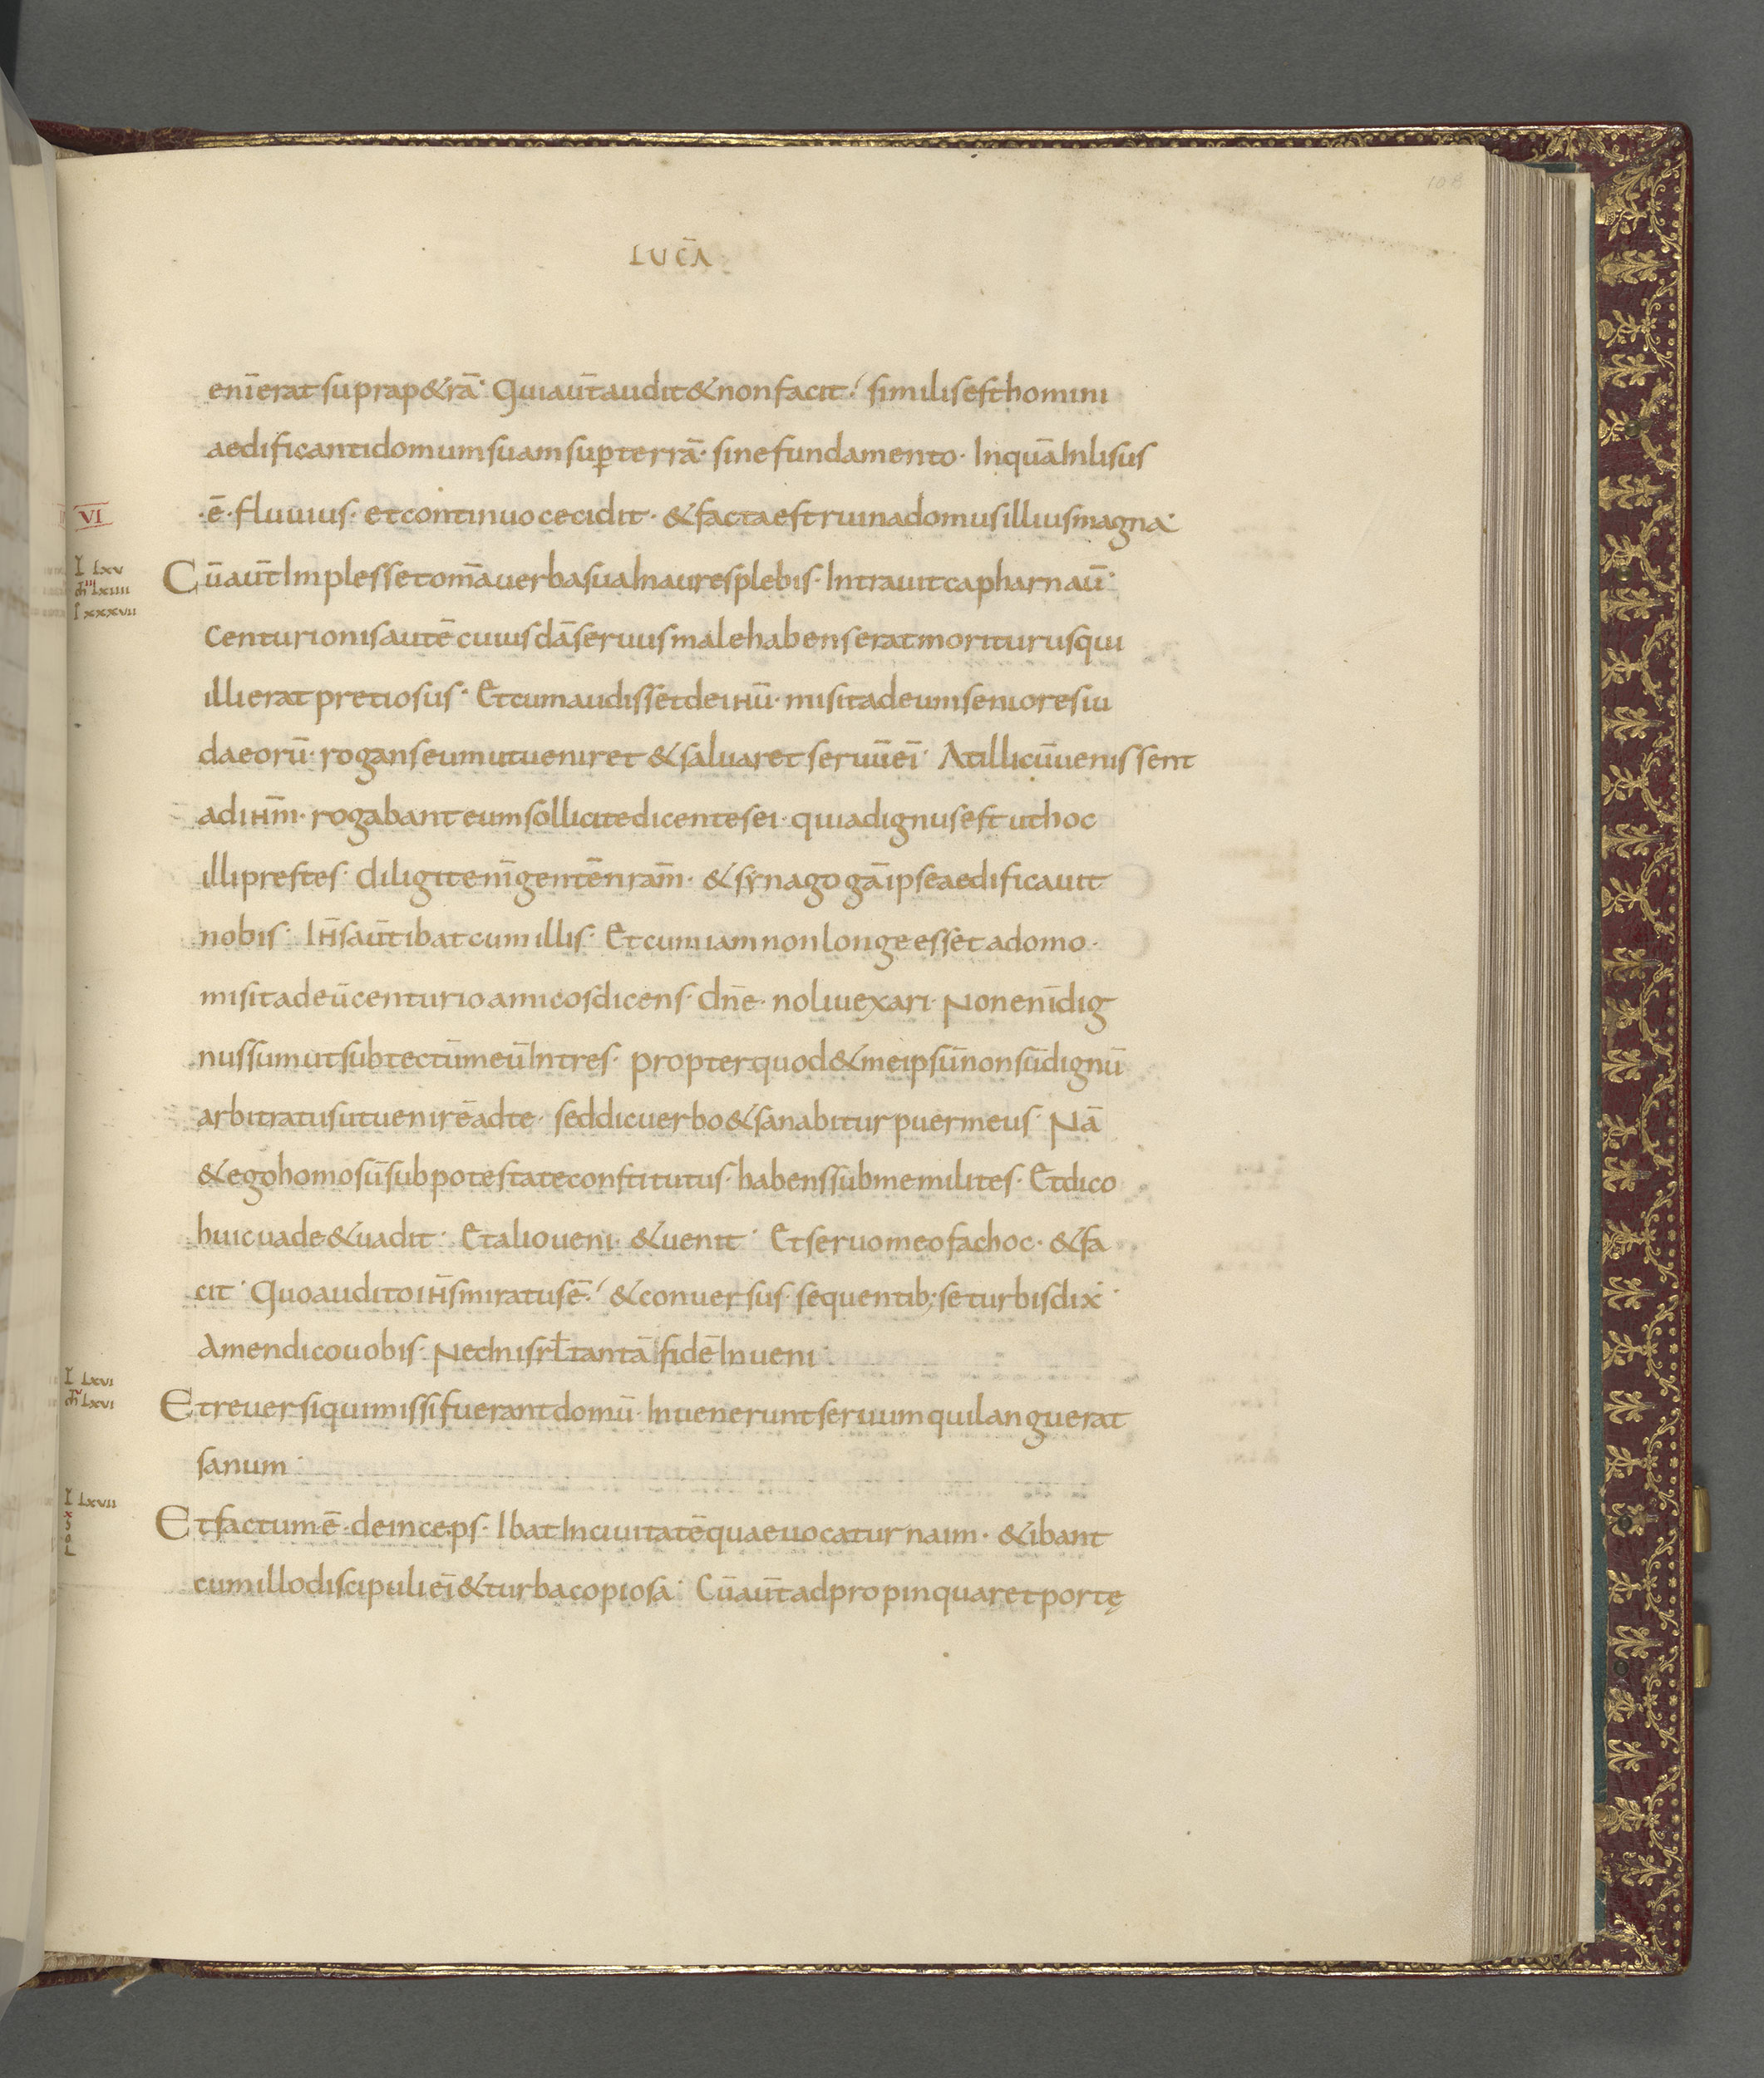 108
LUCĀ
enī erat supra p&rā· Qui aūt audit & non facit· similis est homini
aedificanti domum suam sup̄ terrā· sine fundamento· In quā Inlisus
·ē· fluuius· et continuo cecidit· & facta est ruina domus illius magna·
VI
I LXV
m̄ LXIIII
l XXXVII
Cū aūt Implesset om̄a uerba sua In aures plebis· Intrauit capharnaū·
Centurionis autē cuiusdā seruus male habens erat moriturus qui
illi erat pretiosus· Et cum audisset de ihū· misit ad eum seniores iu
daeorū· rogans eum ut ueniret & saluaret seruū eī· At illi cū uenissent
ad ihm̄· rogabant eum sollicite dicentes ei· quia dignus est ut hoc
illi prestes· diligit enī gentē nram̄· & synagogā ipse aedificauit
nobis· Ihs̄ aūt ibat cum illis· Et cum iam non longe esset a domo·
misit ad eū centurio amicos dicens· dn̄e· noli uexari· Non enī dig
nus sum ut sub tectū meū Intres· propter quod & me ipsū non sū dignū
arbitratus ut uenirē ad te· sed dic uerbo & sanabitur puer meus· Nā
& ego homo sū sub potestate constitutus· habens sub me milites· Et dico
huic uade & uadit· Et alio ueni· & uenit· Et seruo meo fac hoc· & fa
cit· Quo audito ihs̄ miratus ē· & conuersus· sequentib; se turbis dix̄·
Amen dico uobis· Nec In isrl̄ tantā fidē Inueni·
I LXVI
m̄ LXVI
Et reuersi qui missi fuerant domū· Inuenerunt seruum qui languerat
sanum·
I LXVII
x
s
o
L
Et factum ē· deinceps· Ibat In ciuitatē quae uocatur naim· & ibant
cum illo discipuli eī & turba copiosa· Cū aūt adpropinquaret portę